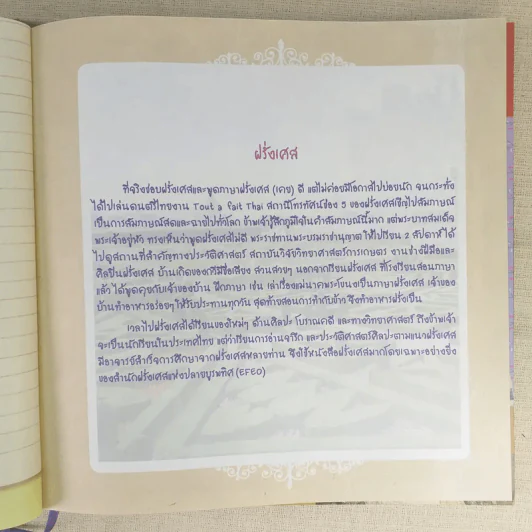 ฝรั่งเศส
ที่จริงชอบฝรั่งเศสและพูดภาษาฝรั่งเศส (เคย) ดี แต่ไม่ค่อยมีโอกาสไปบ่อยนัก จนกระทั่ง
ได้ไปเล่นดนตรีไทยงาน Tout a fait Thai สถานีโทรทัศน์ช่อง 5 ของฝรั่งเศสเชิญไปสัมภาษณ์
เป็นการสัมภาษณ์สดและฉายไปทั่วโลก ข้าพเจ้ารู้สึกภูมิใจในคำสัมภาษณ์นี้มาก แต่พระบาทสมเด็จ
พระเจ้าอยู่หัว ทรงเห็นว่าพูดฝรั่งเศสไม่ดี พระราชทานพระบรมราชานุญาตให้ไปเรียน 2 สัปดาห์ ได้
ไปดูสถานที่สำคัญทางประวัติศาสตร์ สถาบันวิจัยวิทยาศาสตร์การเกษตร งานช่างฝีมือและ
ศิลปินฝรั่งเศส บ้านเกิดของกวีมีชื่อเสียง สวนสวยๆ นอกจากเรียนฝรั่งเศส ที่โรงเรียนสอนภาษา
แล้ว ได้พูดคุยกับเจ้าของบ้าน ฝึกภาษา เช่น เล่าเรื่องแม่นาคพระโขนงเป็นภาษาฝรั่งเศส เจ้าของ
บ้านทำอาหารอร่อยๆ ให้รับประทานทุกวัน สุดท้ายสอนการทำกับข้าว จึงทำอาหารฝรั่งเป็น
เวลาไปฝรั่งเศสได้เรียนของใหม่ๆ ด้านศิลปะ โบราณคดี และทางวิทยาศาสตร์ ถึงข้าพเจ้า
จะเป็นนักเรียนในประเทศไทย แต่ว่าเรียนการอ่านจารึก และประวัติศาสตร์ศิลปะตามแนวฝรั่งเศส
มีอาจารย์สำเร็จการศึกษาจากฝรั่งเศสหลายท่าน จึงใช้หนังสือฝรั่งเศสมากโดยเฉพาะอย่างยิ่ง
ของสำนักฝรั่งเศสแห่งปลายบูรพทิศ (EFEO)